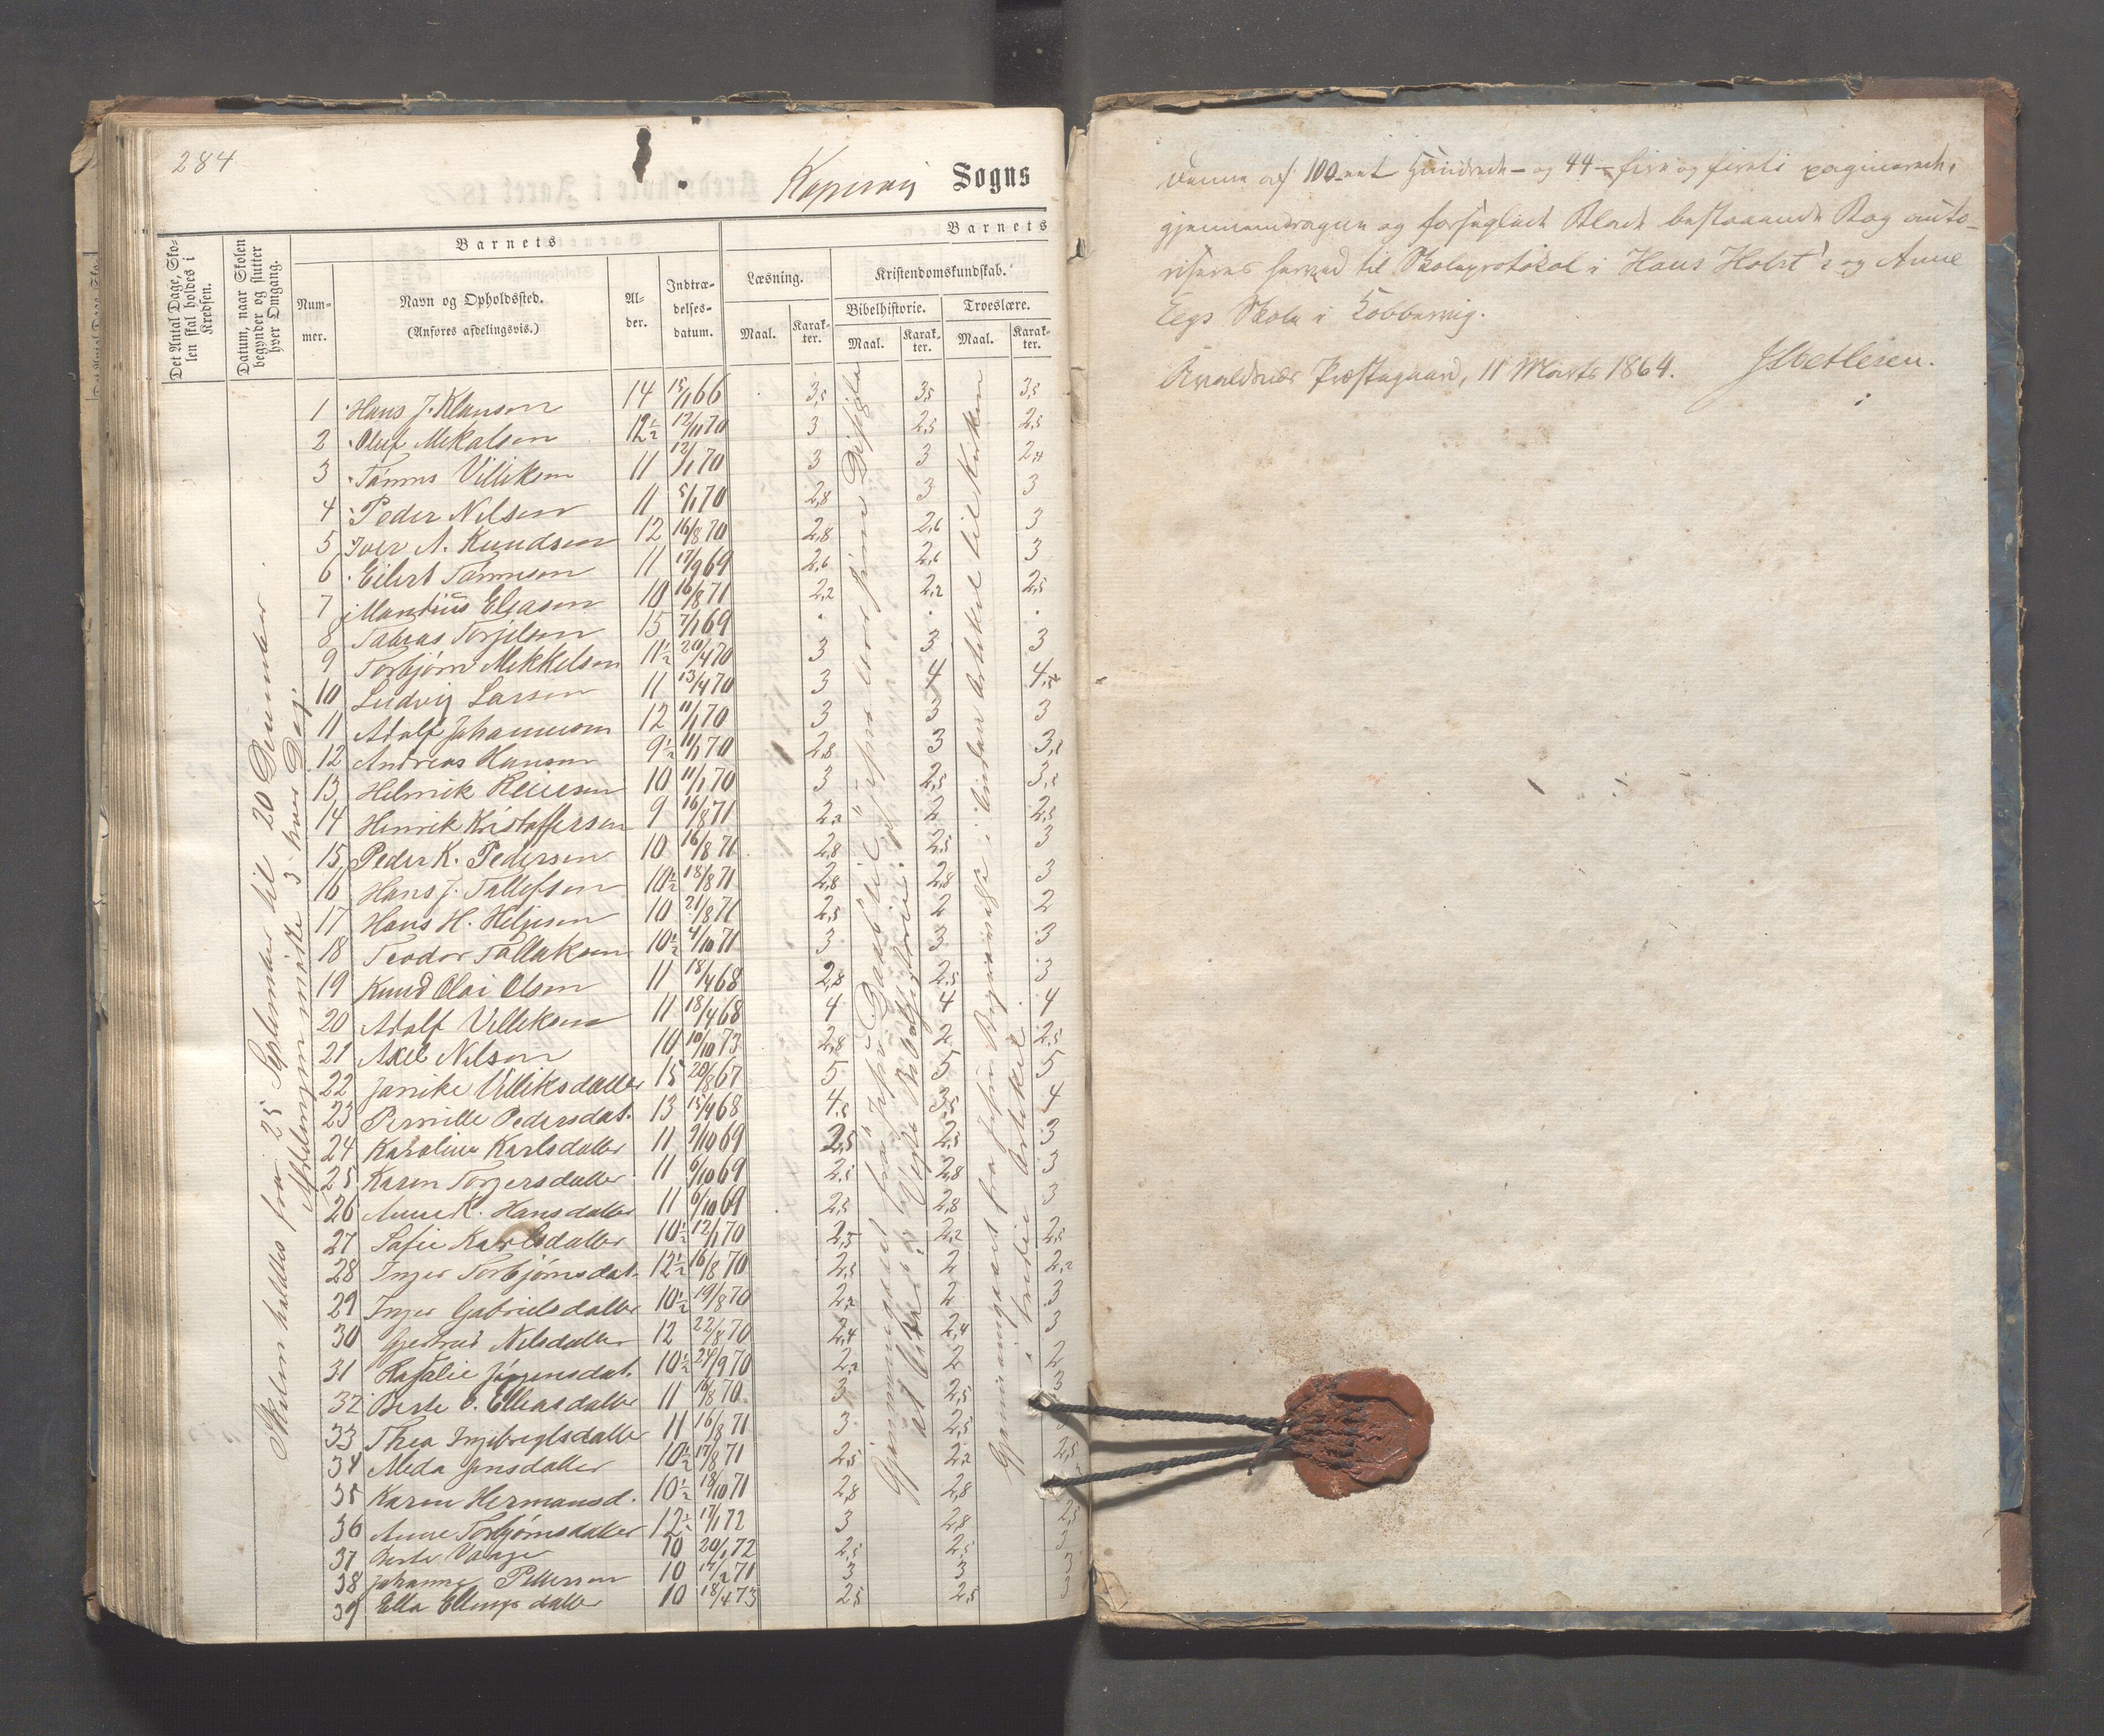 284
Kopervig Sogns
Det Antal Dage, Sko-
len skal holdes i
Kredsen.
Datum, naar Skolen
begynder og slutter
hver Omgang.
Barnets
Barnets
Num-
mer.
Navn og Opholdssted.
(Anføres afdelingsvis.)
Al-
der.
Indtræ-
delses-
datum.
Læsning.
Kristendomskundskab.
Maal.
Karak-
ter.
Bibelhistorie.
Troeslære.
Maal.
Karak-
ter.
Maal.
Karak-
ter.
Skolen holdtes fra 25 September til 20 Desember
Afdelingen møtte 3 hver Dag.
1 Hans J. Klausen 14 15/1 66 3,5 3,5 3,5
2 Oluf Mekalsen 12½ 12/11 70 3 2,5 2,5
3 Tønnes Villiksen 11 12/1 70 3 3
4 Peder Nilsen 11 5/1 70 2,8 3 3
5 Iver A. Knudsen 12 16/8 70 2,8 2,6 3
6 Eilert Tønnesen 11 17/9 69 2,6 2,6 3
7 Mandius Eliasen 10 16/8 71 2,2 2,2 2,5
8 Tobias Torjelsen 15 7/1 69
9 Torbjørn Mikkelsen 11½ 20/4 70 3 3 3
10 Ludvig Larsen 11 13/4 70 3 4 4,5
11 Adolf Johannesen 12 11/1 70 3 3 3
12 Andreas Hansen 9½ 11/1 70 2,8 3 3,8
13 Helmik Reiersen 10 11/1 70 3 2,5 3,5
14 Henrik Kristoffersen 9 16/8 71 2,2 2 2,5
15 Peder K. Pedersen 10 16/8 71 2,8 2,5 3
16 Hans J. Tollefsen 10½ 18/8 71 2,8 2,8 3
17 Hans H. Helgesen 10 21/8 71 2,5 2 2
18 Teodor Tollaksen 10½ 4/10 71 3 3 3
19 Knud Olai Olsen 11 18/4 68 2,8 2,5 3
20 Adolf Villiksen 11 18/4 68 4 4 4
21 Axel Nilsen 10 10/10 73 2,8 2 2,5
22 Janike Villiksdatter 15 20/8 67 5 5 5
23 Pernille Pedersdat. 13 15/4 68 4,5 3,5 4
24 Karoline Karlsdatter 11 2/10 69 2,5 2,5 3
25 Karen Torgersdatter 11 6/10 69 2,5 2,8 3
26 Anne K. Hansdatter 11 6/10 69 2,5 2,8 3
27 Sofie Karlsdatter 10½ 12/1 70 2,5 2,2 2,5
28 Inger Torbjørnsdat. 12½ 16/8 70 2,5 2 2,2
29 Inger Gabrielsdatter 10½ 19/8 70 2,2 2 3
30 Gjertrud Nilsdatter 12 22/8 70 2,4 2,4 3
31 Rafalie Jørgensdat. 10½ 24/9 70 2,2 2 2
32 Berte O. Elleasdatter 11 16/8 70 3 2,5 3
33 Thea Ingebregtsdatter 11 16/8 71 3 2,5
34 Meda Jensdatter 10½ 17/8 71 2,5 2,2 2,5
35 Karen Hermansd. 10½ 18/10 71 2,8 2,8
36 Anne Torbjørnsdatter 12½ 17/1 72 3 2,8 2,5
37 Berte Vaage 10 20/1 72 2,5 2,5 3
38 Johanne Pettersen 10 17/2 71 3 3 3
39 Ella Ellingsdatter 10 18/4 73 2,5 2,5 3
Gjennemgaaet fra Jesu Daab til Jesus lærer sine Disiple
at bede i Bibelhistorie.
Gjennemgaaet fra Begyndelse i anden Artikel til Kirken
i tredie Artikel.
Denne af 100 – eet Hundrede – og 44 – fire og firti paginerede,
gjennemdragne og forseglede Blade bestaaende Bog auto-
riseres herved til Skoleprotokol i Hans Holst's og Anne
Eegs Skole i Kobbervig.
Avaldsnæs Præstegaard, 11 Marts 1864.